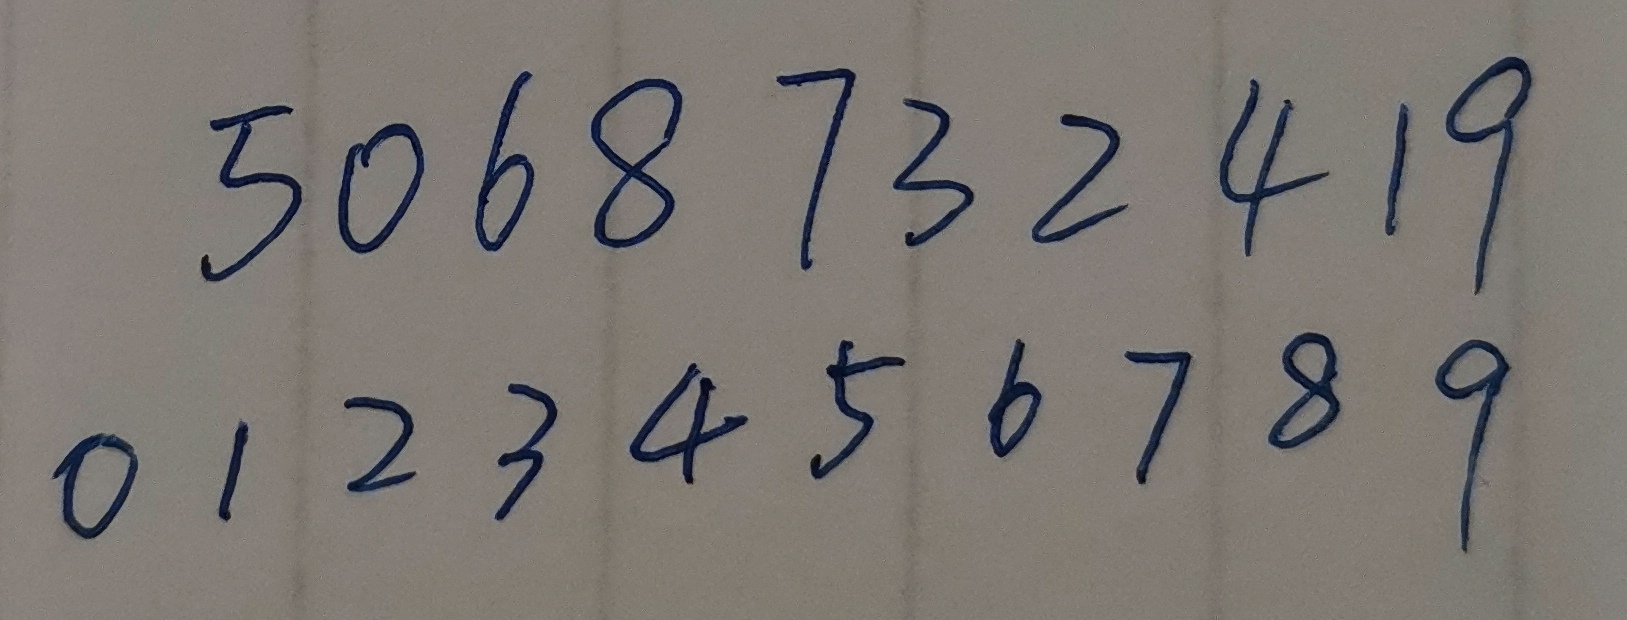 5068732419
0123456789